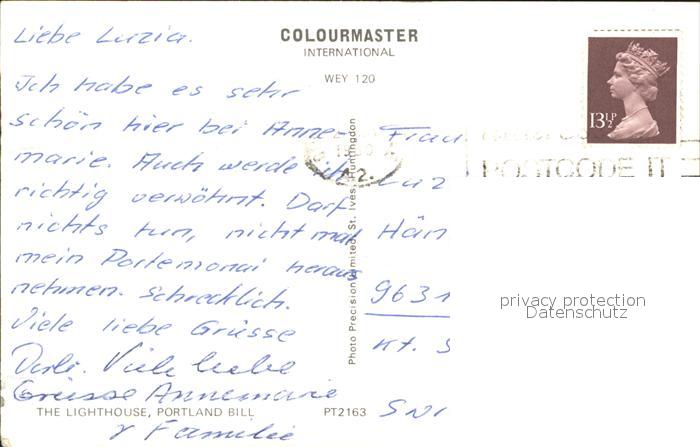 Liebe Luzia.
COLOURMASTER
INTERNATIONAL
WEY 120
Ich habe es sehr
schön hier bei Anne-
marie. Auch werde ich
richtig verwöhnt. Darf
nichts tun, nicht mal
mein Portemonai heraus
nehmen. Schrecklich.
Viele liebe Grüsse
Viele liebe
Grüsse Annemarie
Familie
THE LIGHTHOUSE, PORTLAND BILL
PT2163
Photo Precision Limited, St. Ives, Huntingdon
13½P
POSTCODE IT
Frau
Luz
Hän
9631
Kt. S
privacy protection
Datenschutz